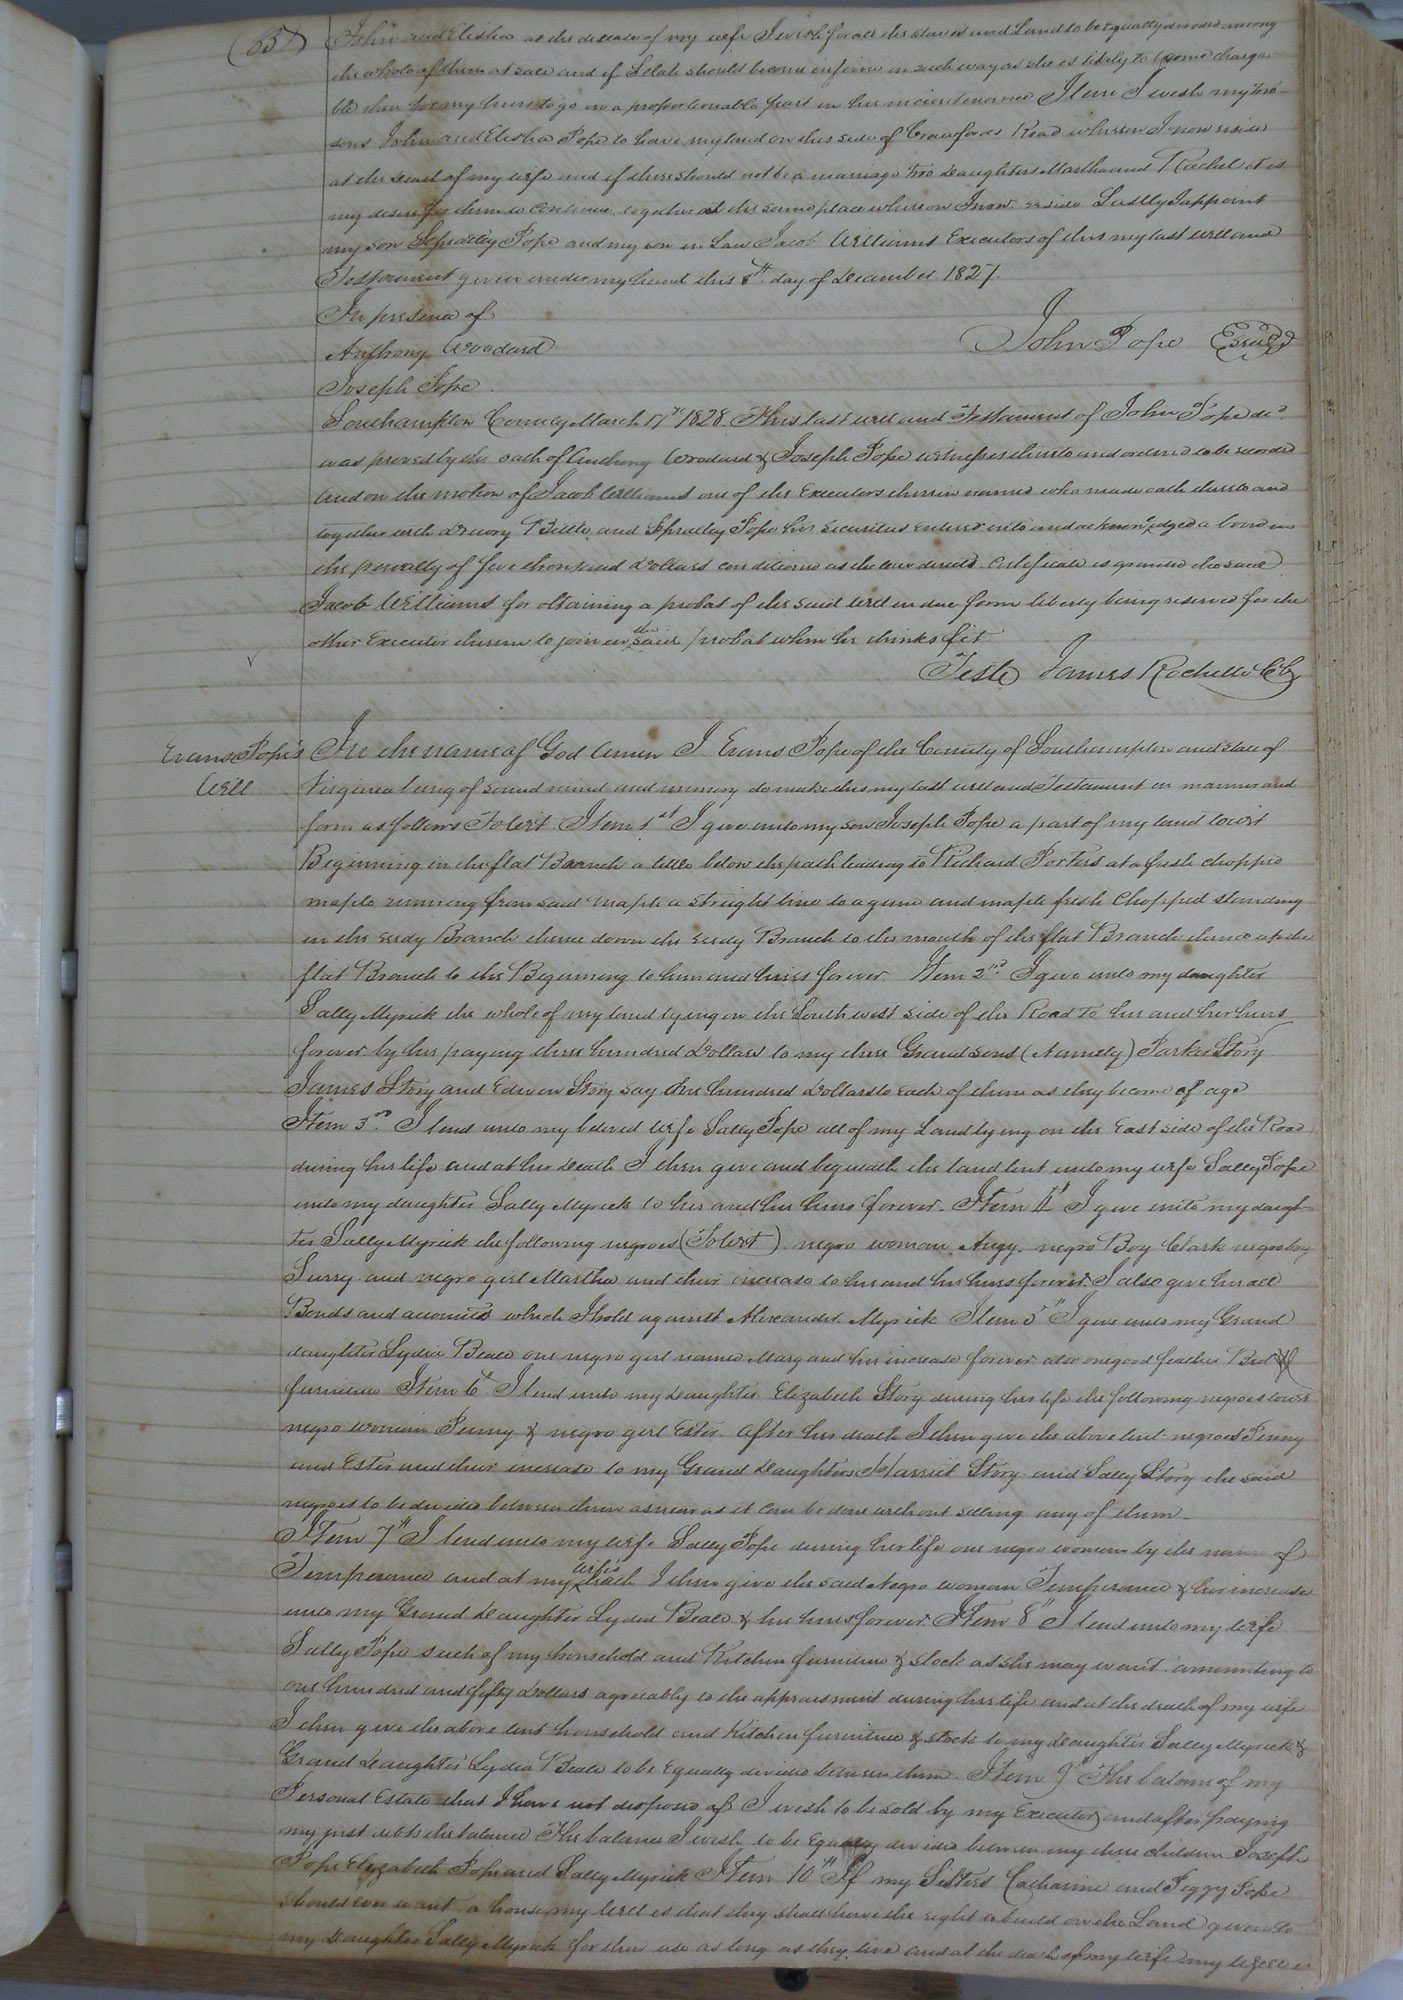 John and Elisha at the decease of my wife I wish for all the slaves and Land to be equally divided among
the whole of them at sale and if Selah should become infirm in such way as she is likely to become charga-
ble then for my heirs to go in a proportionable part in her maintenance Item I wish my two
sons John and Elisha Pope to have my land on this side of Crawfords Road whereon I now reside
at the death of my wife and if there should not be a marriage two daughters Martha and Rachel it is
my desire for them to continue together at the same place whereon I now reside Lastly I appoint
my son Spratley Pope and my son in Law Jacob Williams Executors of this my last will and
Testament given under my hand this 8th day of December 1827.
In presence of
Anthony Woodard
John Pope (Seal)
Joseph Pope.
Southampton County March 17th 1828. This last will and Testament of John Pope decd
was proved by the oath of Anthony Woodard & Joseph Pope witnesses thereto and ordered to be recorded
And on the motion of Jacob Williams one of the Executors therein named who made oath thereto and
together with Drewry Bittle and Spratley Pope his securities entered into and acknowledged a bond in
the penalty of five thousand Dollars conditioned as the law directs Certificate is granted the said
Jacob Williams for obtaining a probat of the said will in due form liberty being reserved for the
other Executor therein to join in the said probat when he thinks fit
Teste James Rochelle CC
Evans Pope's
Will
In the name of God Amen I Evans Pope of the County of Southampton and state of
Virginia being of sound mind and memory do make this my last will and Testament in manner and
form as follows Towit Item 1st I give unto my son Joseph Pope a part of my land towit
Beginning in the flat Branch a little below the path leading to Richard Porters at a fresh chopped
maple running from said maple a streight line to a gum and maple fresh Chopped standing
in the reedy Branch thence down the reedy Branch to the mouth of the flat Branch thence up the
flat Branch to the Beginning to him and heirs forever. Item 2nd I give unto my daughter
Sally Myrick the whole of my land lying on the South west side of the Road to her and her heirs
forever by her paying three hundred Dollars to my three Grand sons (Namely) Parker Story
James Story and Edwin Story say One hundred Dollars to each of them as they become of age
Item 3rd I lend unto my beloved wife Sally Pope all of my Land lying on the East side of the Road
during her life and at her death I then give and bequeath the land lent unto my wife Sally Pope
unto my daughter Sally Myrick to her and her heirs forever. Item 4th I give unto my daugh-
ter Sally Myrick the following negroes (Towit) negro woman Angy, negro Boy Clark negro boy
Surry and negro girl Martha and their increase to her and her heirs forever. I also give her all
Bonds and accounts which I hold against Alexander Myrick Item 5th I give unto my Grand
daughter Lydia Beale one negro girl named Mary and her increase forever also one good feather Bed &
furniture Item 6th I lend unto my Daughter Elizabeth Story during her life the following negroes towit
negro woman Penny & negro girl Ester. After her death I then give the above lent negroes Penny
and Ester and their increase to my Grand Daughters Harriet Story and Sally Story the said
negroes to be divided between them as near as it can be done without selling any of them
Item 7th I lend unto my wife Sally Pope during her life one negro woman by the name of
Temperance and at my wife's death I then give the said Negro woman Temperance & her increase
unto my Grand Daughter Lydia Beale & her heirs forever. Item 8th I lend unto my wife
Sally Pope such of my household and Kitchen furniture & stock as she may want amounting to
one hundred and fifty Dollars agreeably to the appraisment during her life and at the death of my wife
I then give the above lent household and Kitchen furniture & stock to my Daughter Sally Myrick &
Grand daughter Lydia Beale to be Equally divided between them. Item 9th The balance of my
Personal Estate that I have not disposed of I wish to be sold by my Executor and after paying
my just debts the balance The balance I wish to be Equally divided between my three children Joseph
Pope Elizabeth Pope and Sally Myrick Item 10th If my Sisters Catharine and Peggy Pope
should ever want a house my will is that they shall have the right to build on the Land given to
my Daughter Sally Myrick for their use as long as they live and at the death of my wife my will is